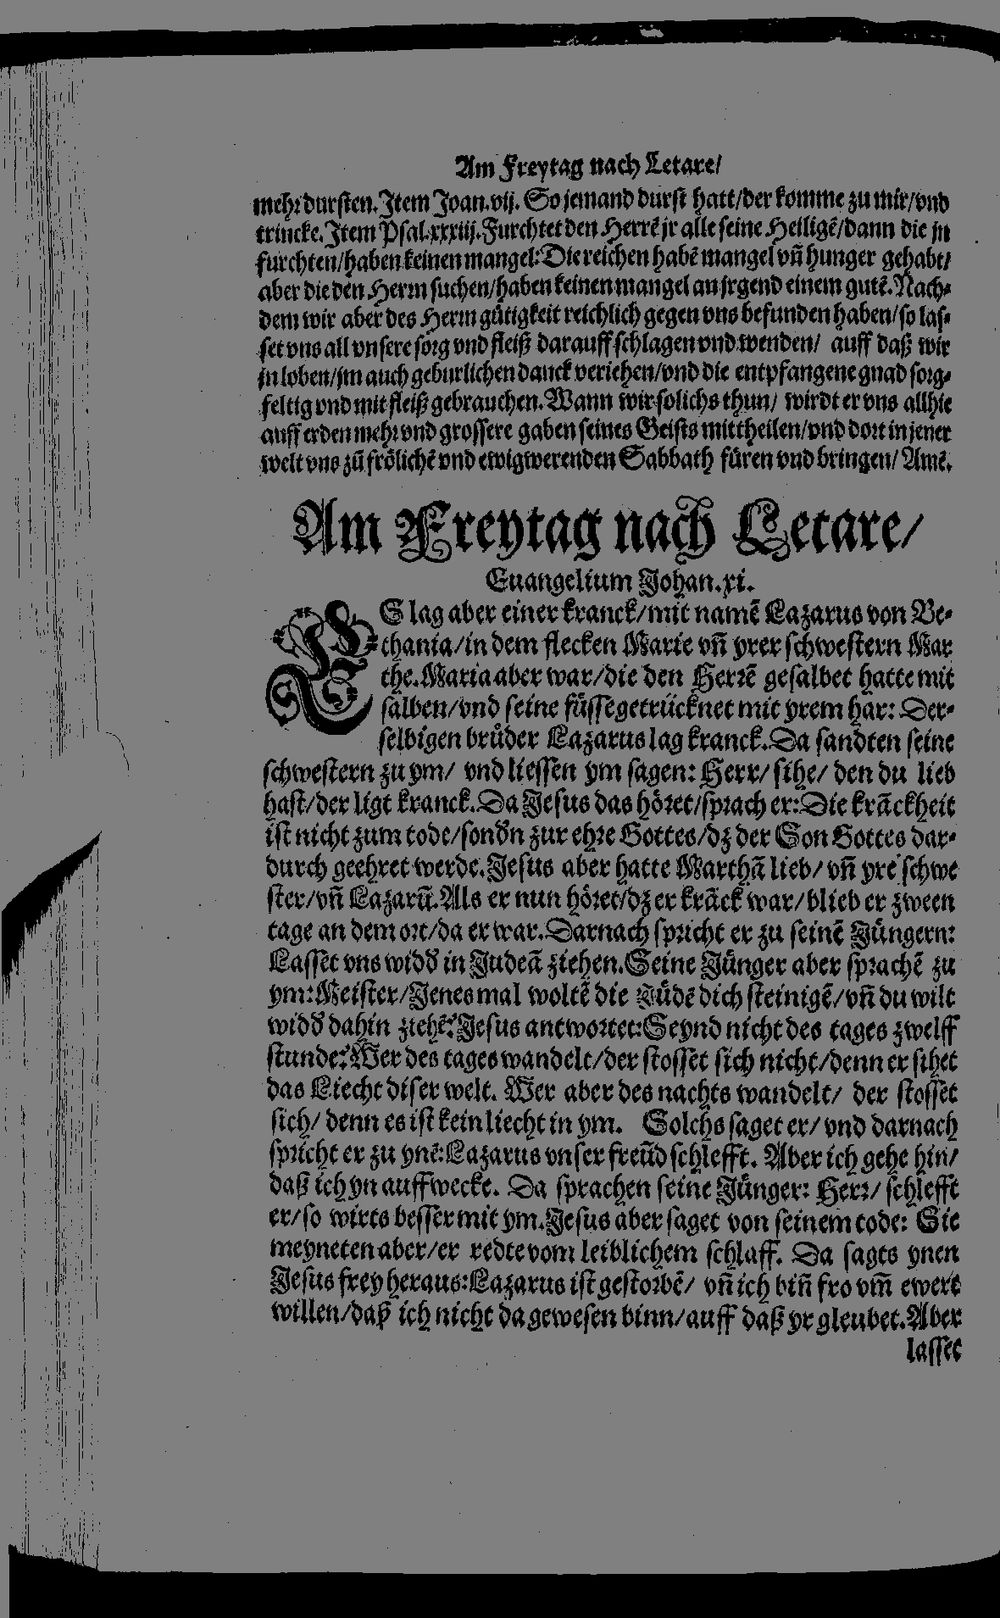 Am Freytag nach Letare/
mehr dursten. Item Joan.vij. So jemand durst hatt/der komme zu mir/vnd
trincke. Item Psal.xxxiij. Furchtet den Herrē jr alle seine Heiligē/dann die jn
furchten/haben keinen mangel: Die reichen habē mangel vñ hunger gehabt/
aber die den Herrn suchen/haben keinen mangel an jrgend einem gutē. Nach⸗
dem wir aber des Herrn gütigkeit reichlich gegen vns befunden haben/so las⸗
set vns all vnsere sorg vnd fleiß darauff schlagen vnd wenden/ auff daß wir
jn loben/jm auch geburlichen danck veriehen/vnd die entpfangene gnad sorg⸗
feltig vnd mit fleiß gebrauchen. Wann wir solichs thun/ wirdt er vns allhie
auff erden mehr vnd grossere gaben seines Geists mittheilen/vnd dort in jener
welt vns zů frölichē vnd ewigwerenden Sabbath füren vnd bringen/ Amē.
Am Freytag nach Letare/
Euangelium Johan.xi.
ES lag aber einer kranck/mit namē Lazarus von Be⸗
thania/in dem flecken Marie vñ yrer schwestern Mar
the. Maria aber war/die den Herrē gesalbet hatte mit
salben/vnd seine füsse getrücknet mit yrem har: Der⸗
selbigen brůder Lazarus lag kranck. Da sandten seine
schwestern zu ym/ vnd liessen ym sagen: Herr/ sihe/ den du lieb
hast/der ligt kranck. Da Jesus das höret/sprach er: Die krāckheit
ist nicht zum tode/sondn zur ehre Gottes/dz der Son Gottes dar⸗
durch geehret werde. Jesus aber hatte Marthā lieb/ vñ yre schwe
ster/vñ Lazarū. Als er nun höret/dz er krāck war/blieb er zween
tage an dem ort/da er war. Darnach spricht er zu seinē Jüngern:
Lasset vns widd in Judeā ziehen. Seine Jünger aber sprachē zu
ym: Meister/Jenesmal woltē die Jüdē dich steinigē/vñ du wilt
widd dahin ziehē? Jesus antwortet: Seynd nicht des tages zwelff
stunde? Wer des tages wandelt/der stosset sich nicht/denn er sihet
das Liecht diser welt. Wer aber des nachts wandelt/ der stosset
sich/ denn es ist kein liecht in ym. Solchs saget er/ vnd darnach
spricht er zu ynē: Lazarus vnser freūd schlefft. Aber ich gehe hin/
daß ich yn auffwecke. Da sprachen seine Jünger: Herr/ schlefft
er/so wirts besser mit ym. Jesus aber saget von seinem tode: Sie
meyneten aber/er redte vom leiblichem schlaff. Da sagts ynen
Jesus frey heraus: Lazarus ist gestorbē/ vñ ich biñ fro vm̃ ewert
willen/daß ich nicht da gewesen binn/auff daß yr gleubet. Aber
lasset